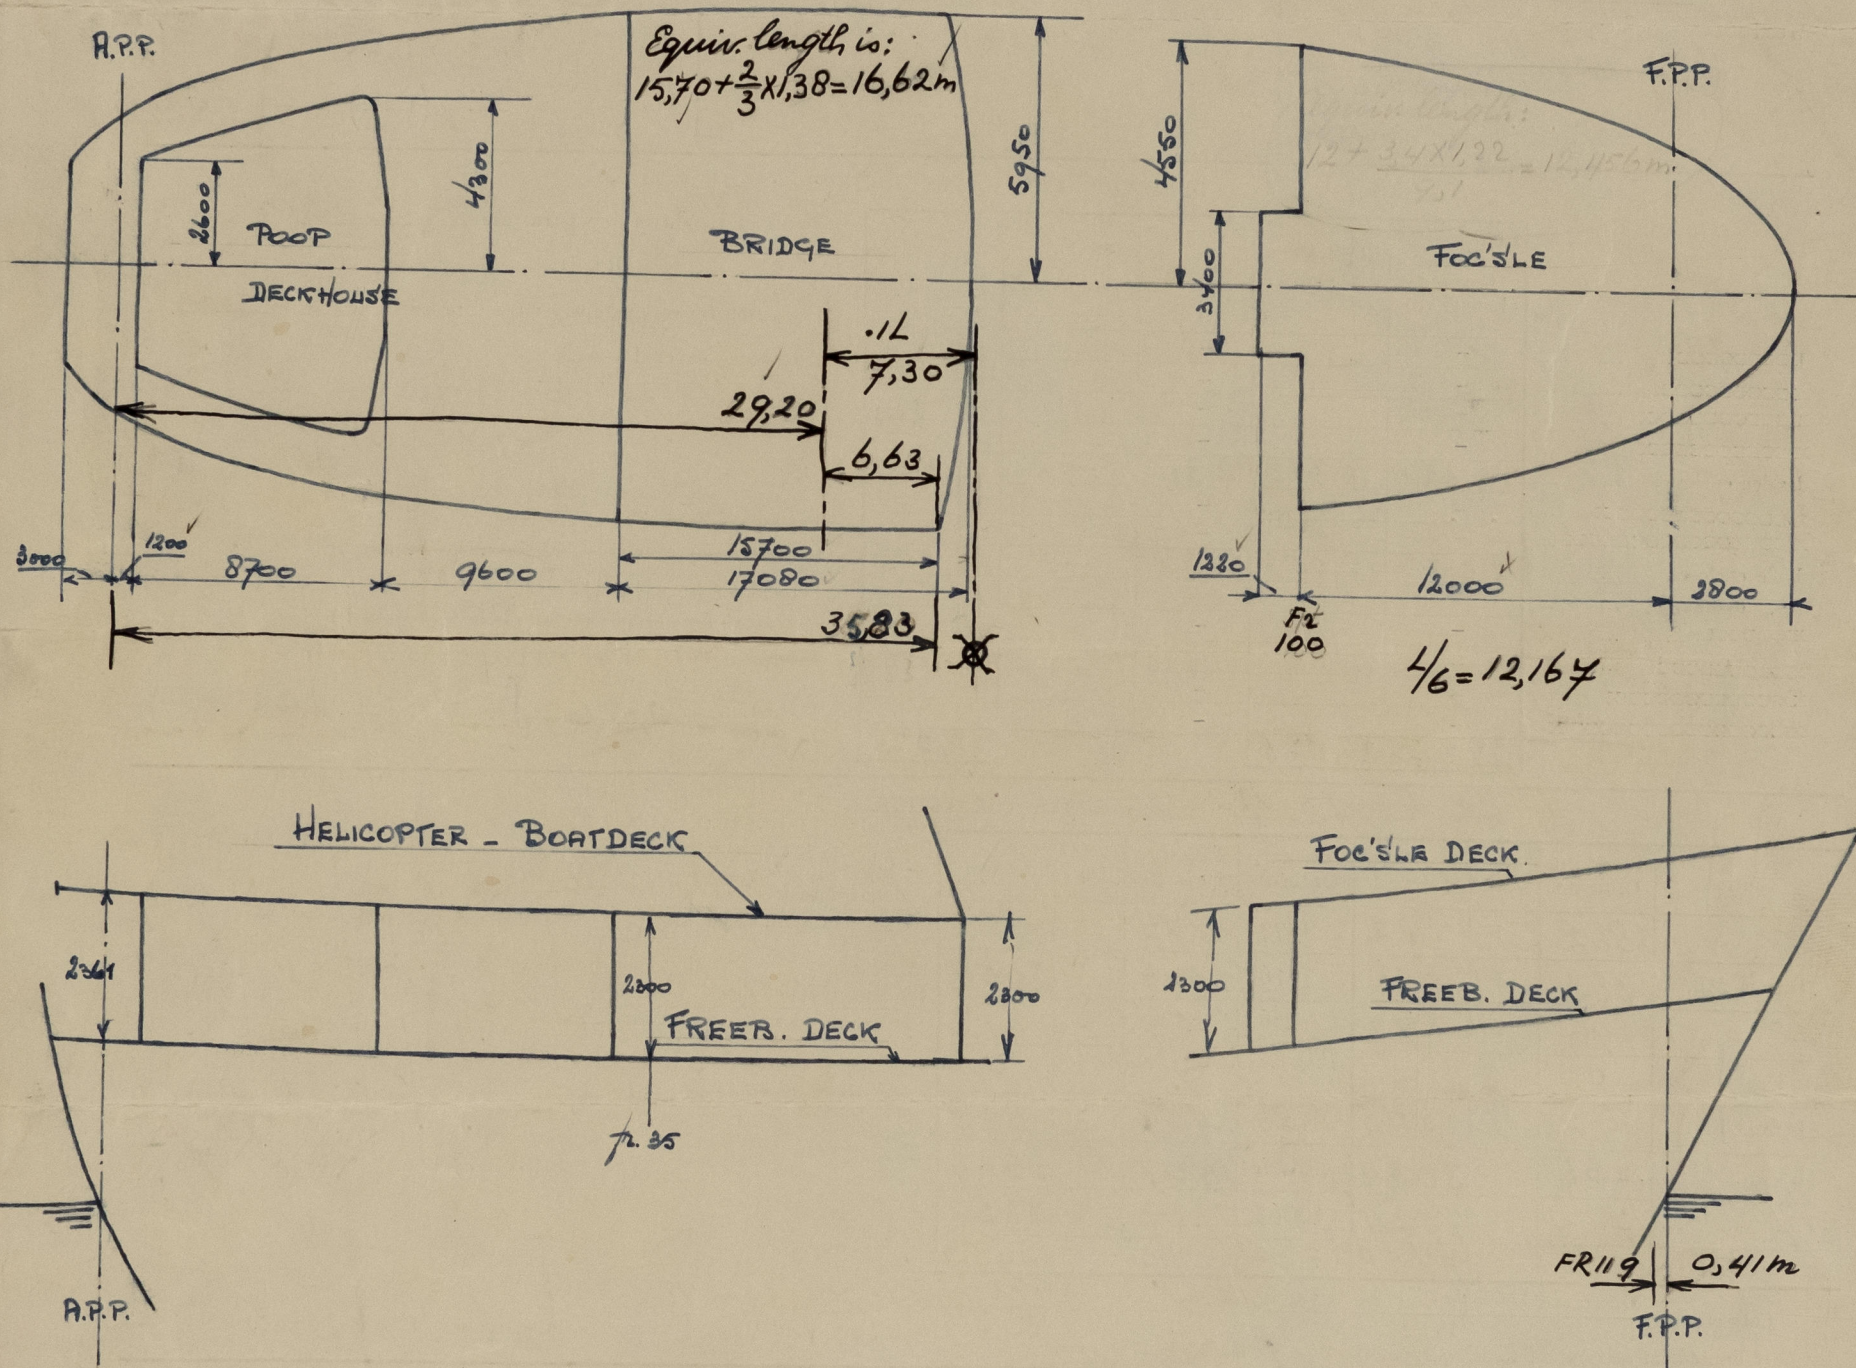 A.P.P.
Equiv. length is:
15,70 + 2/3 x 1,38 = 16,62 m
F.P.P.
Equiv. length:
12 + 3,4 x 1,22 = 12,456 m
5950
4550
4300
2600
POOP
DECKHOUSE
BRIDGE
3400
FOC'S'LE
.1L
7,30
29,20
6,63
3000
1200
8700
9600
15700
17080
35,83
1220
12000
2800
Fr
100
L/6 = 12,167
HELICOPTER - BOATDECK
FOC'S'LE DECK.
2361
2300
2300
FREEB. DECK
2300
FREEB. DECK
fr. 35
FR 119
0,41 m
A.P.P.
F.P.P.